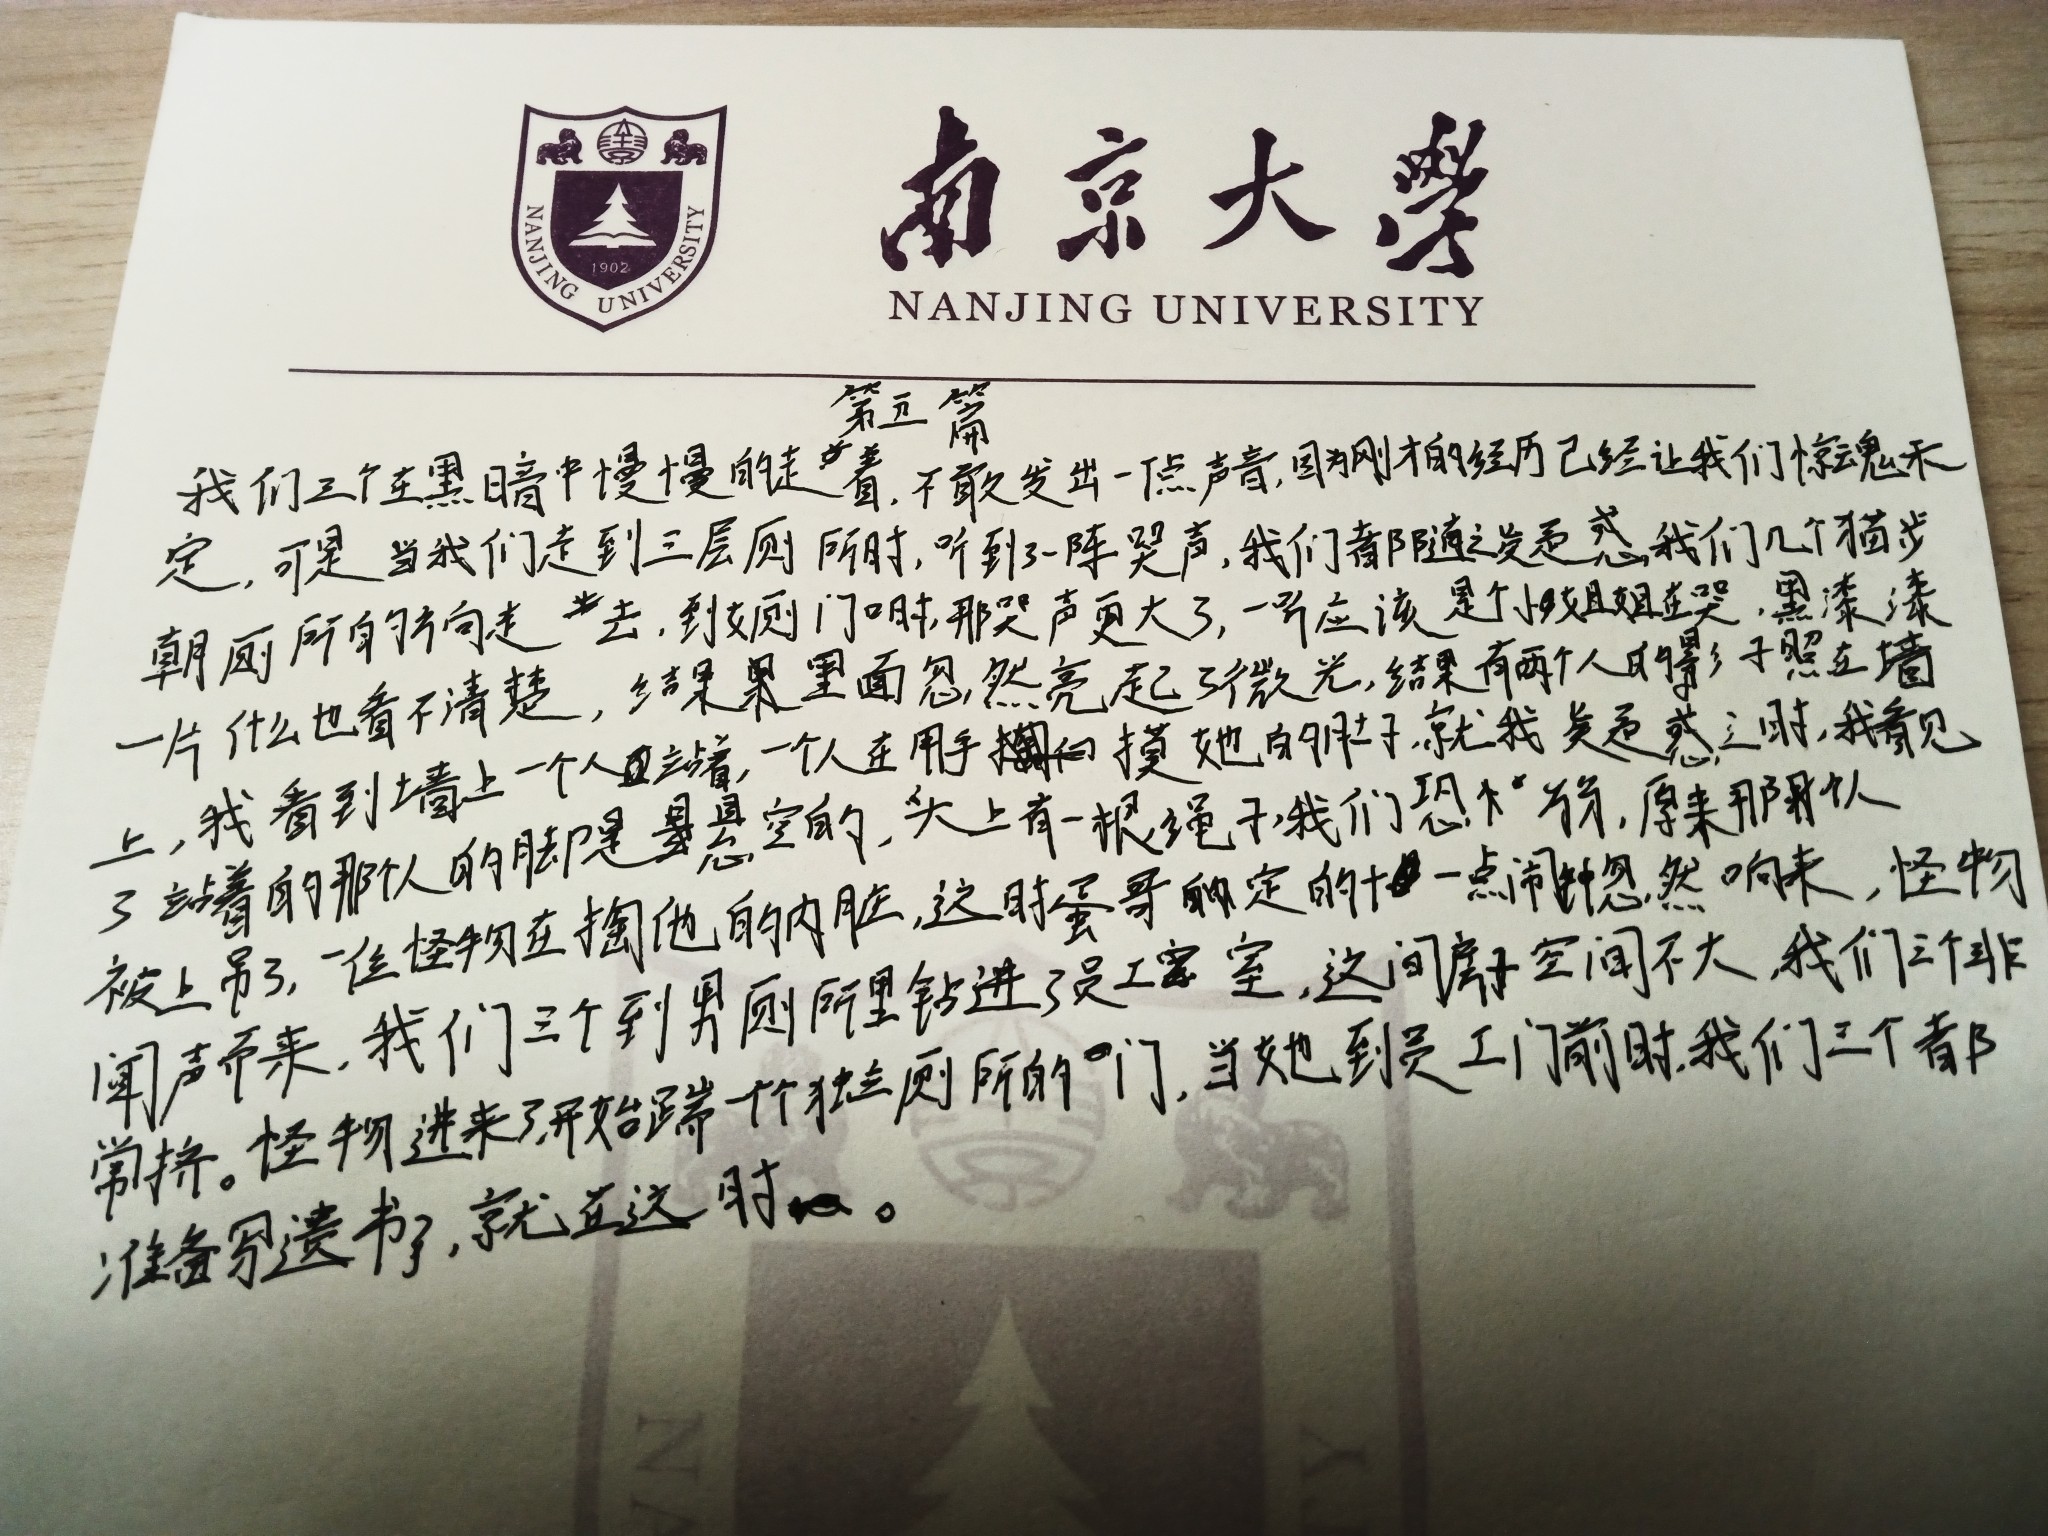 NANJING UNIVERSITY
1902
南京大學
NANJING UNIVERSITY
第五篇
我们三个在黑暗中慢慢的走着，不敢发出一点声音，因为刚才的经历已经让我们惊魂未
定，可是当我们走到三层厕所时，听到了一阵哭声，我们都随之发惑，我们几个猫步
朝厕所的方向走去，到女厕门口时，那哭声更大了，一听应该是个小姐姐在哭，黑漆漆
一片什么也看不清楚，结果里面忽然亮起了微光，结果有两个人的影子照在墙
上，我看到墙上一个人站着，一个人在用手摸她的肚子，就我发惑之时，我看见
了站着的那个人的脚是悬空的，头上有一根绳子，我们恐，原来那个人
被上吊了，一位怪物在掏他的内脏，这时蛋哥定的十一点闹钟忽然响来，怪物
闻声而来，我们三个到男厕所里钻进了员工室，这间房子空间不大，我们三个非
常挤。怪物进来了，开始踹一个个独立厕所的门，当她到员工门前时，我们三个都
准备写遗书了，就在这时。